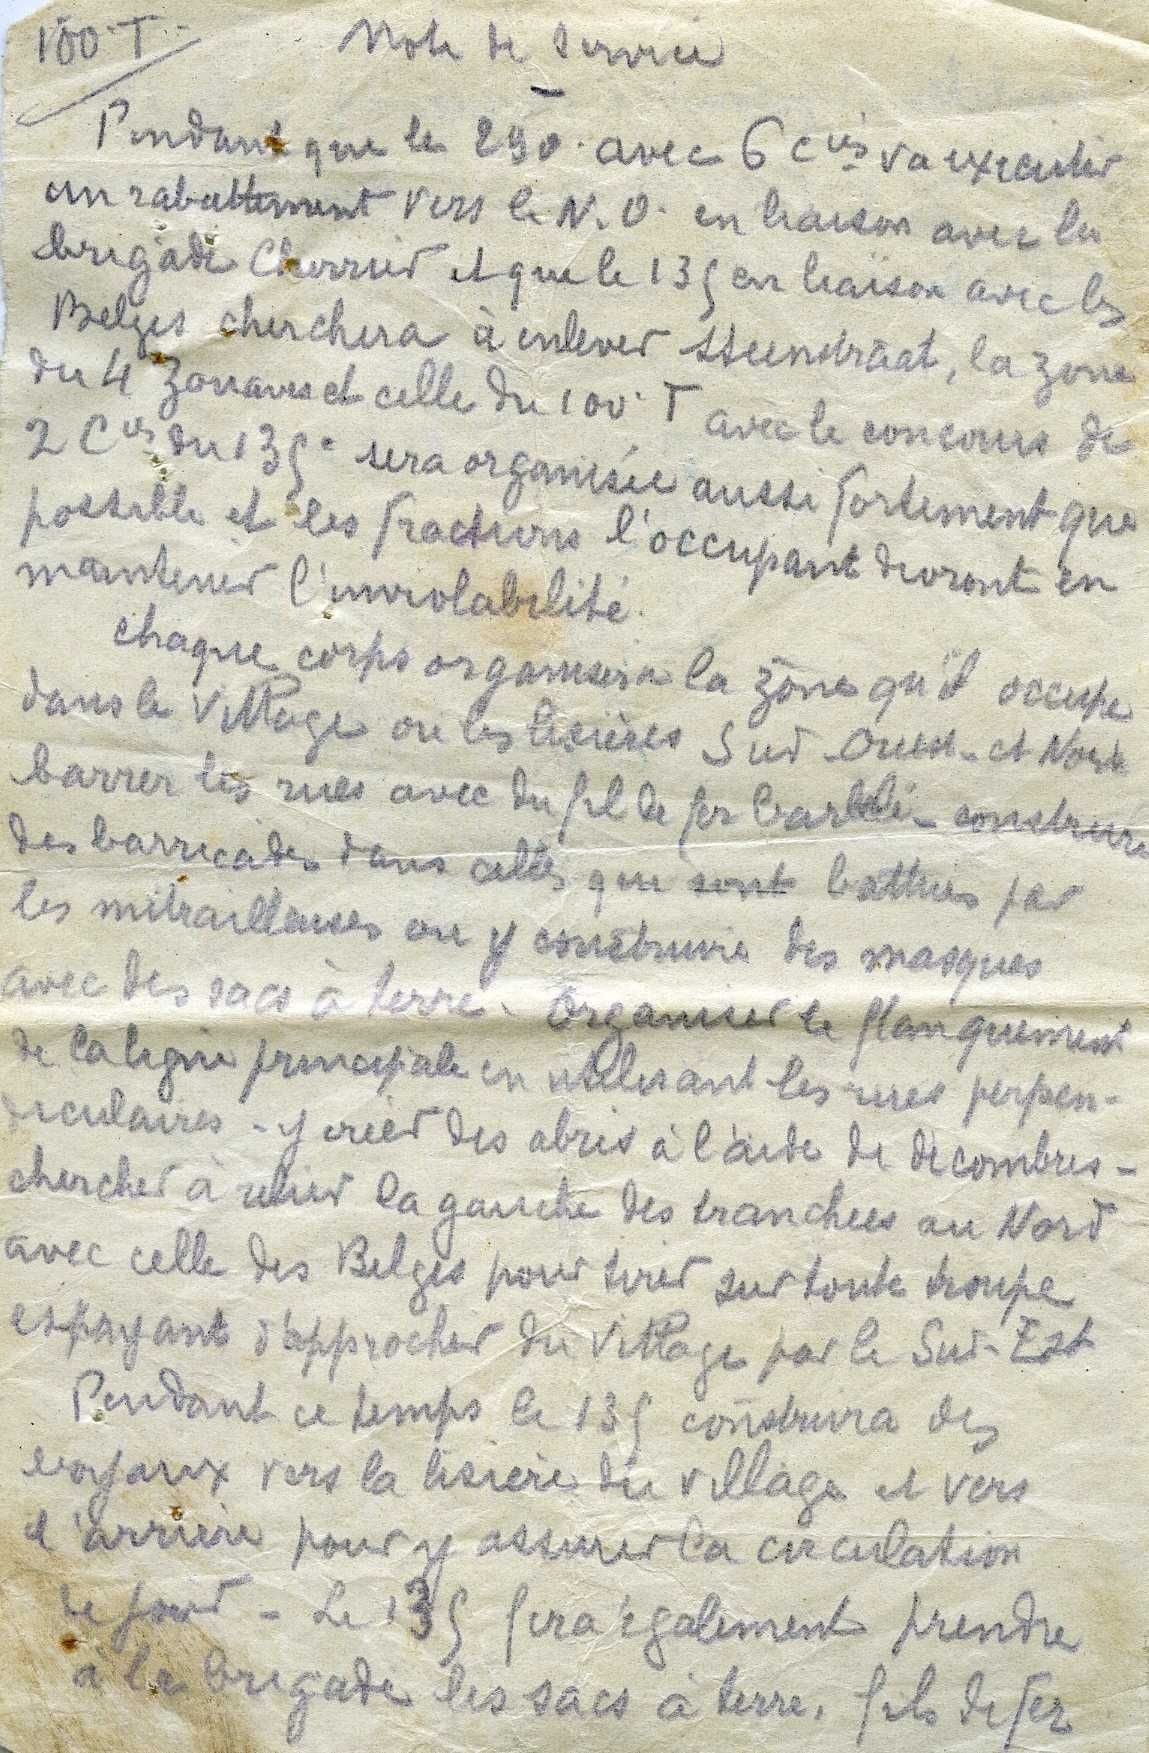 100.T. Note de Service
Pendant que le 290. avec 6 Cies va exécuter
un rabattement vers le N.O. en liaison avec la
brigade Cherrier et que le 135 en liaison avec les
Belges cherchera à enlever Steenstraat, la zone
du 4 Zouaves et celle du 100.T avec le concours de
2 Cies du 135e sera organisée aussi fortement que
possible et les fractions l'occupant devront en
maintenir l'inviolabilité.
chaque corps organisera la zone qu'il occupe
dans le village ou les lisières Sud Ouest et Nord
barrer les rues avec du fil de fer barbelé - construire
des barricades dans celles que sont battues par
les mitrailleuses ou y construire des masques
avec des sacs à terre. Organiser le flanquement
de la ligne principale en utilisant les rues perpen-
diculaires - y créer des abris à l'aide de décombres -
chercher à relier la gauche des tranchées au Nord
avec celle des Belges pour tirer sur toute troupe
essayant d'approcher du village par le Sud-Est
Pendant ce temps le 135 construira des
boyaux vers la lisière du village et vers
l'arrière pour y assurer la circulation
de jour - Le 135 fera également prendre
à la brigade les sacs à terre, fils de fer